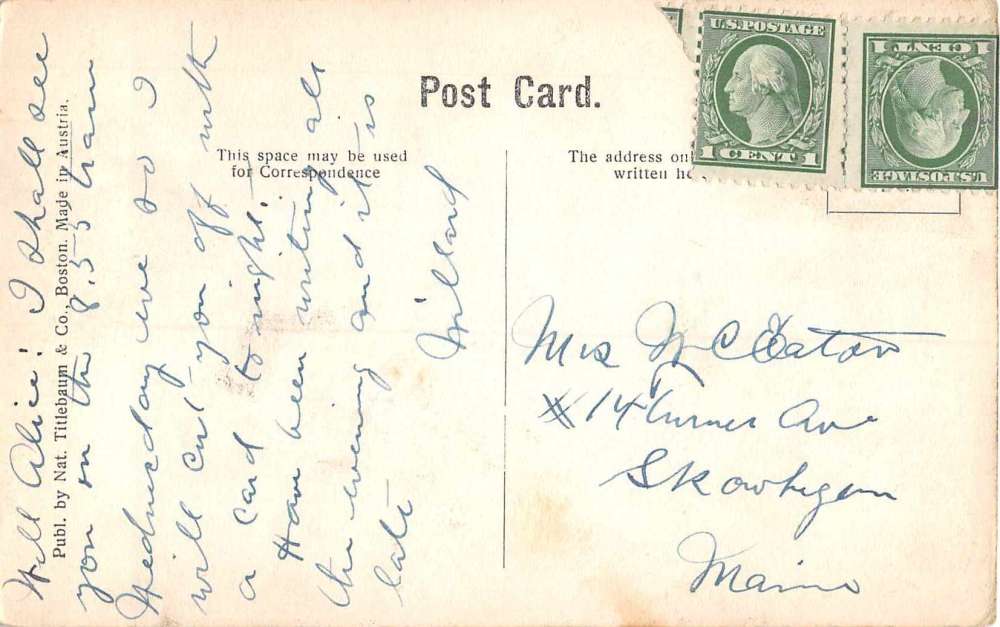 Post Card.
This space may be used
for Correspondence
The address on
written he
U.S.POSTAGE
1 CENT 1
1 CENT 1
U.S.POSTAGE
Publ. by Nat. Titlebaum & Co., Boston. Made in Austria.
Well Alice! I shall see
you on the 8,55 train
Wednesday eve so I
will cut you off with
a card to night.
Have been writing all
the evening and it is
late
Willard
Mrs W C Eaton
#14 Turner Ave
Skowhegan
Maine